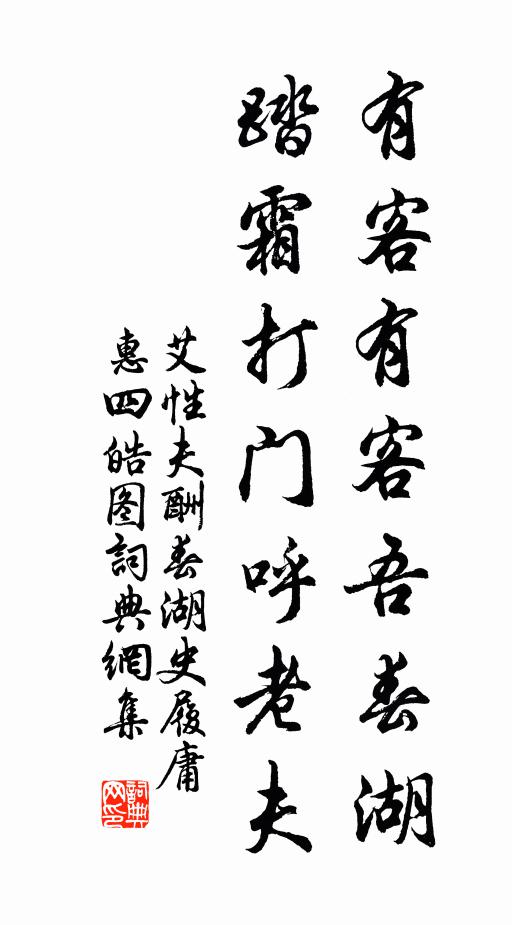 有客有客吾春湖
踏霜打门呼老夫
艾性夫酬春湖史履庸
惠四皓图詞典網集
詞典网印